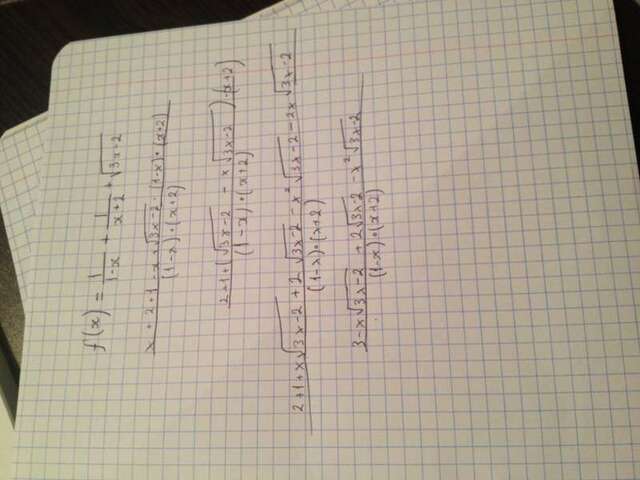 f(x) = 1/(1-x) + 1/(x+2) + √(3x-2)
(x+2+1-x+√(3x-2)·(1-x)·(x+2))/((1-x)·(x+2))
(2+1+(√(3x-2) - x√(3x-2))·(x+2))/((1-x)·(x+2))
(2+1+x√(3x-2) + 2√(3x-2) - x²√(3x-2) - 2x√(3x-2))/((1-x)·(x+2))
(3-x√(3x-2) + 2√(3x-2) - x²√(3x-2))/((1-x)·(x+2))